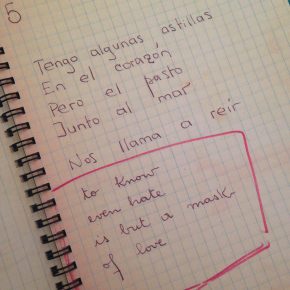 5
Tengo algunas astillas
En el corazón
Pero el pasto
Junto al mar
Nos llama a reir
to know
even hate
is but a mask
of love